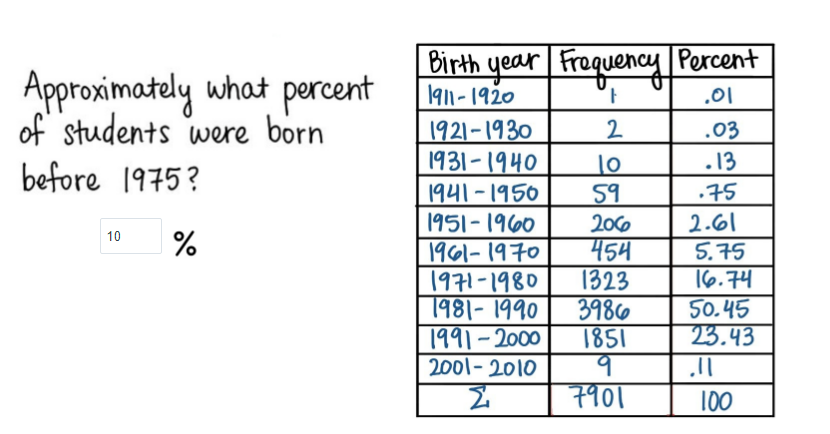 Approximately what percent
of students were born
before 1975?
10 %
Birth year Frequency Percent
1911-1920 1 .01
1921-1930 2 .03
1931-1940 10 .13
1941-1950 59 .75
1951-1960 206 2.61
1961-1970 454 5.75
1971-1980 1323 16.74
1981-1990 3986 50.45
1991-2000 1851 23.43
2001-2010 9 .11
Σ 7901 100